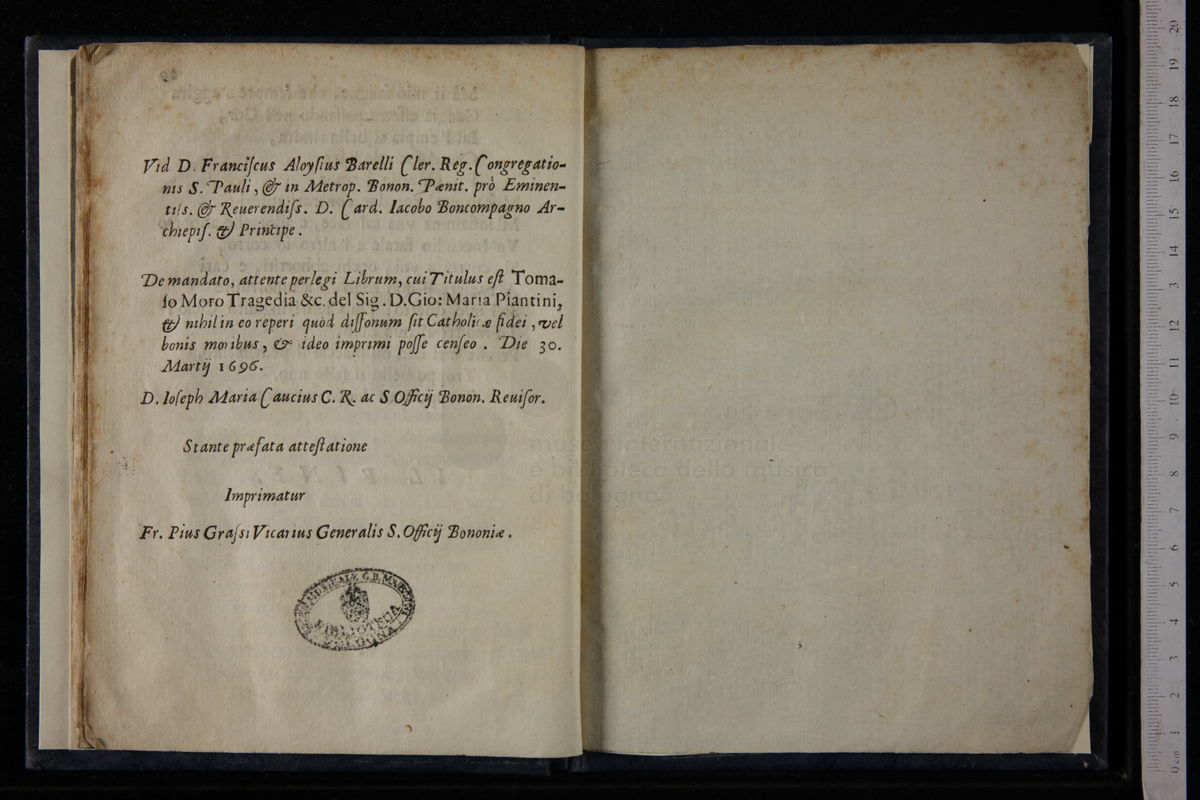 Vid D. Franciſcus Aloyſius Barelli Cler. Reg. Congregatio-
nis S. Pauli, & in Metrop. Bonon. Pænit. prò Eminen-
tiſs. & Reuerendiſs. D. Card. Iacobo Boncompagno Ar-
chiepiſ. & Principe.
De mandato, attente perlegi Librum, cui Titulus eſt Toma-
ſo Moro Tragedia &c. del Sig. D. Gio: Maria Piantini,
& nihil in eo reperi quòd diſſonum ſit Catholicæ fidei, vel
bonis moribus, & ideo imprimi poſſe cenſeo. Die 30.
Martij 1696.
D. Ioſeph Maria Caucius C. R. ac S Officij Bonon. Reuiſor.
Stante præfata atteſtatione
Imprimatur
Fr. Pius Graſsi Vicarius Generalis S. Officij Bononiæ.
BIBLIOTECA
BOLOGNA
museo internazionale
e biblioteca della musica
di bologna
0 cm 1 2 3 4 5 6 7 8 9 10 11 12 13 14 15 16 17 18 19 20